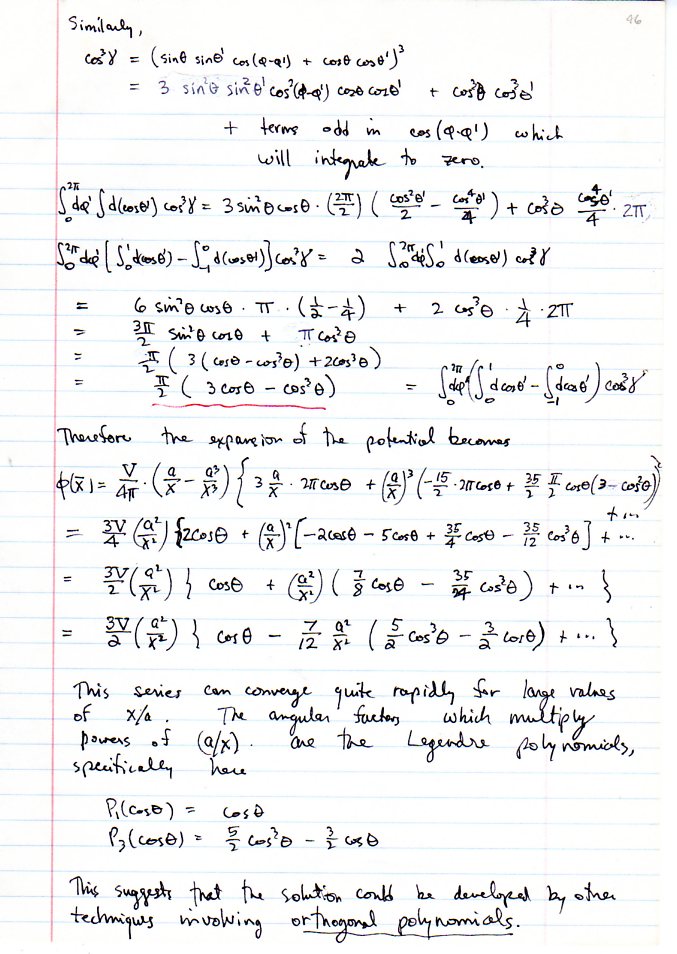 96
Similarly,
cos³γ = (sinθ sinθ' cos(φ-φ') + cosθ cosθ')³
= 3 sin²θ sin²θ' cos²(φ-φ') cosθ cosθ' + cos³θ cos³θ'
+ terms odd in cos(φ-φ') which
will integrate to zero.
∫₀^2π dφ' ∫ d(cosθ') cos³γ = 3 sin²θ cosθ · (2π/2) (cos²θ'/2 − cos⁴θ'/4) + cos³θ cos⁴θ'/4 · 2π
∫₀^2π dφ' [∫₀¹ d(cosθ') − ∫₋₁⁰ d(cosθ')] cos³γ = 2 ∫₀^2π dφ' ∫₀¹ d(cosθ') cos³γ
= 6 sin²θ cosθ · π · (1/2 − 1/4) + 2 cos³θ · 1/4 · 2π
= 3π/2 sin²θ cosθ + π cos³θ
= π/2 (3(cosθ − cos³θ) + 2cos³θ)
= π/2 (3 cosθ − cos³θ) = ∫₀^2π dφ' (∫₀¹ dcosθ' − ∫₋₁⁰ dcosθ') cos³γ
Therefore the expansion of the potential becomes
φ(x̄) = V/4π · (a/x − a³/x³) { 3 a/x · 2π cosθ + (a/x)³ (−15/2 · 2π cosθ + 35/2 π/2 cosθ (3 − cos²θ)) + ... }
= 3V/4 (a²/x²) { 2cosθ + (a/x)² [−2cosθ − 5cosθ + 35/4 cosθ − 35/12 cos³θ] + ...
= 3V/2 (a²/x²) { cosθ + (a²/x²) (7/8 cosθ − 35/24 cos³θ) + ... }
= 3V/2 (a²/x²) { cosθ − 7/12 a²/x² (5/2 cos³θ − 3/2 cosθ) + ... }
This series can converge quite rapidly for large values
of x/a. The angular factors which multiply
powers of (a/x). are the Legendre polynomials,
specifically here
P₁(cosθ) = cosθ
P₃(cosθ) = 5/2 cos³θ − 3/2 cosθ
This suggests that the solution could be developed by other
techniques involving orthogonal polynomials.